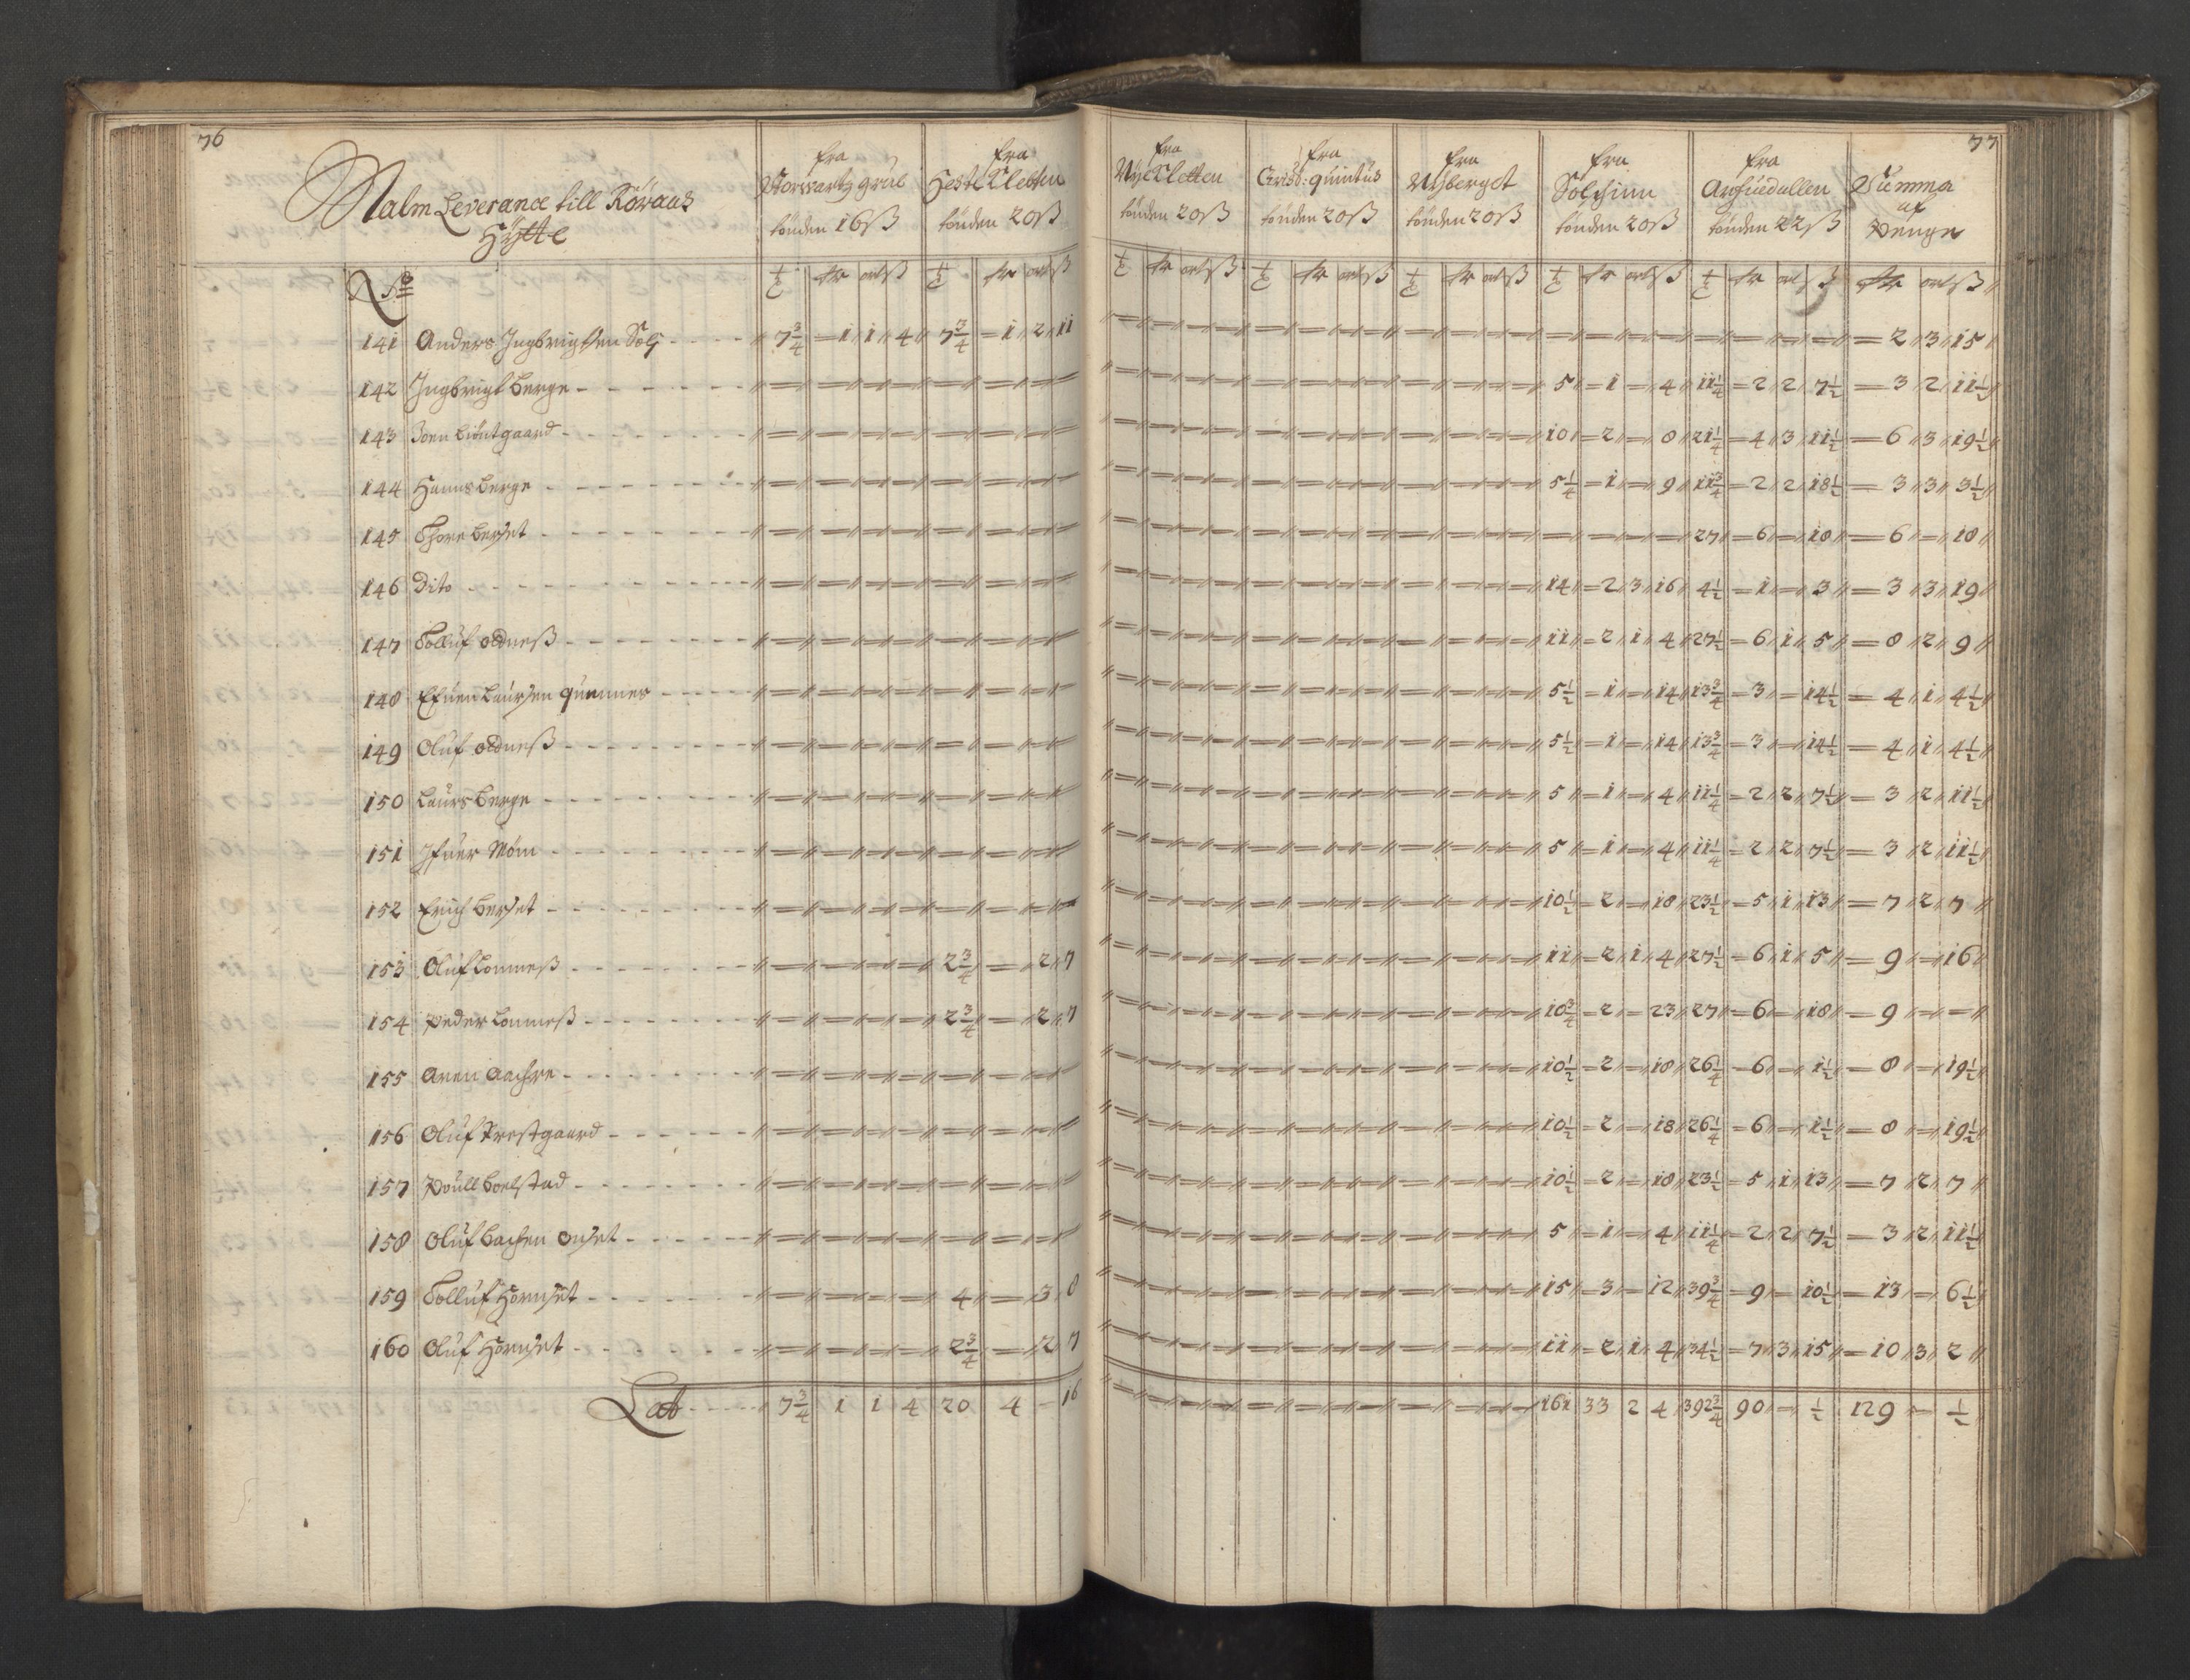 76
Malm Leverance till Röraas
Hytte
fra
Storwartz grue
tönden 16 ß
fra
Hestkletten
tönden 20 ß
fra
Nyekletten
tönden 20 ß
fra
Christ: quintus
tönden 20 ß
fra
Nyberget
tönden 20 ß
fra
Solskinn
tönden 20 ß
fra
Arfuedallen
tönden 22 ß
Summa
af
Penge
77
No
141 Anders Ingbrigtsen Selj 7 3/4 1 1 4 7 3/4 1 2 11 2 3 15
142 Ingbrigt Berge 5 1 4 11 1/4 2 2 7 1/2 3 2 11 1/2
143 Joen Biöntgaard 10 2 8 21 1/4 4 3 11 1/2 6 3 19 1/2
144 Hanns Berge 5 1/4 1 9 11 3/4 2 2 18 1/2 3 3 3 1/2
145 Thore Berset 27 6 18 6 18
146 Dito 14 2 3 16 4 1/2 1 3 3 3 19
147 Tolluf Odneß 11 2 1 4 27 1/2 6 1 5 8 2 9
148 Efuen Laursen quennes 5 1/2 1 14 13 3/4 3 14 1/2 4 1 4 1/2
149 Oluf Odneß 5 1/2 1 14 13 3/4 3 14 1/2 4 1 4 1/2
150 Laurs Berge 5 1 4 11 1/4 2 2 7 1/2 3 2 11 1/2
151 Ifuer Möm 5 1 4 11 1/4 2 2 7 1/2 3 2 11 1/2
152 Erich Berset 10 1/2 2 18 23 1/2 5 1 13 7 2 7
153 Oluf Lonneß 2 3/4 2 7 11 2 1 4 27 1/2 6 1 5 9 16
154 Peder Lonneß 2 3/4 2 7 10 3/4 2 23 27 6 18 9
155 Aren Aachre 10 1/2 2 18 26 1/4 6 1 1/2 8 19 1/2
156 Oluf Prestgaard 10 1/2 2 18 26 1/4 6 1 1/2 8 19 1/2
157 Poull Bolstad 10 1/2 2 18 23 1/2 5 1 13 7 2 7
158 Oluf Bachen Onset 5 1 4 11 1/4 2 2 7 1/2 3 2 11 1/2
159 Tolluf Hornset 4 3 8 15 3 12 39 3/4 9 10 1/2 13 6 1/2
160 Oluf Hornset 2 3/4 2 7 11 2 1 4 34 1/2 7 3 15 10 3 2
Lat 7 3/4 1 1 4 20 4 16 161 33 2 4 392 3/4 90 1/2 129 1/2